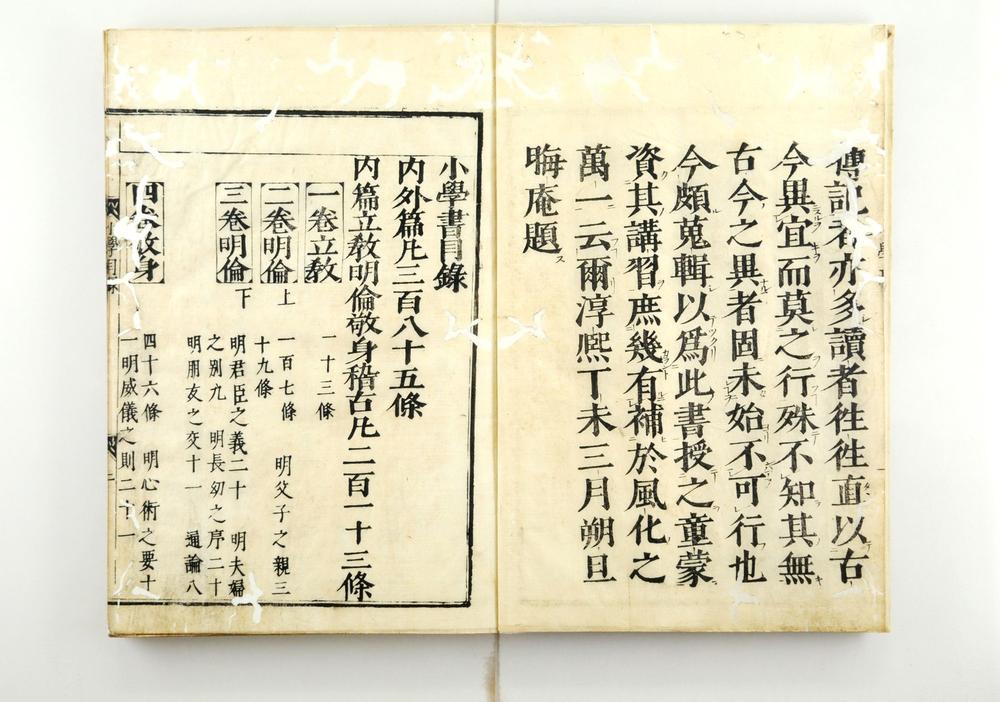 傳記者亦多讀者徃徃直以古
今異宜而莫之行殊不知其無
古今之異者固未始不可行也
今頗蒐輯以爲此書授之童蒙
資其講習庶幾有補於風化之
萬一云爾淳熈丁未三月朔旦
晦庵題
小學書目錄
內外篇凡三百八十五條
內篇立敎明倫敬身稽古凡二百一十三條
一卷立敎 一十三條
二卷明倫上 一百七條 明父子之親三
十九條
三卷明倫下 明君臣之義二十 明夫婦
之別九 明長幼之序二十
明朋友之交十一 通論八
四卷敬身 四十六條 明心術之要十
一明威儀之則二十一
小學目錄